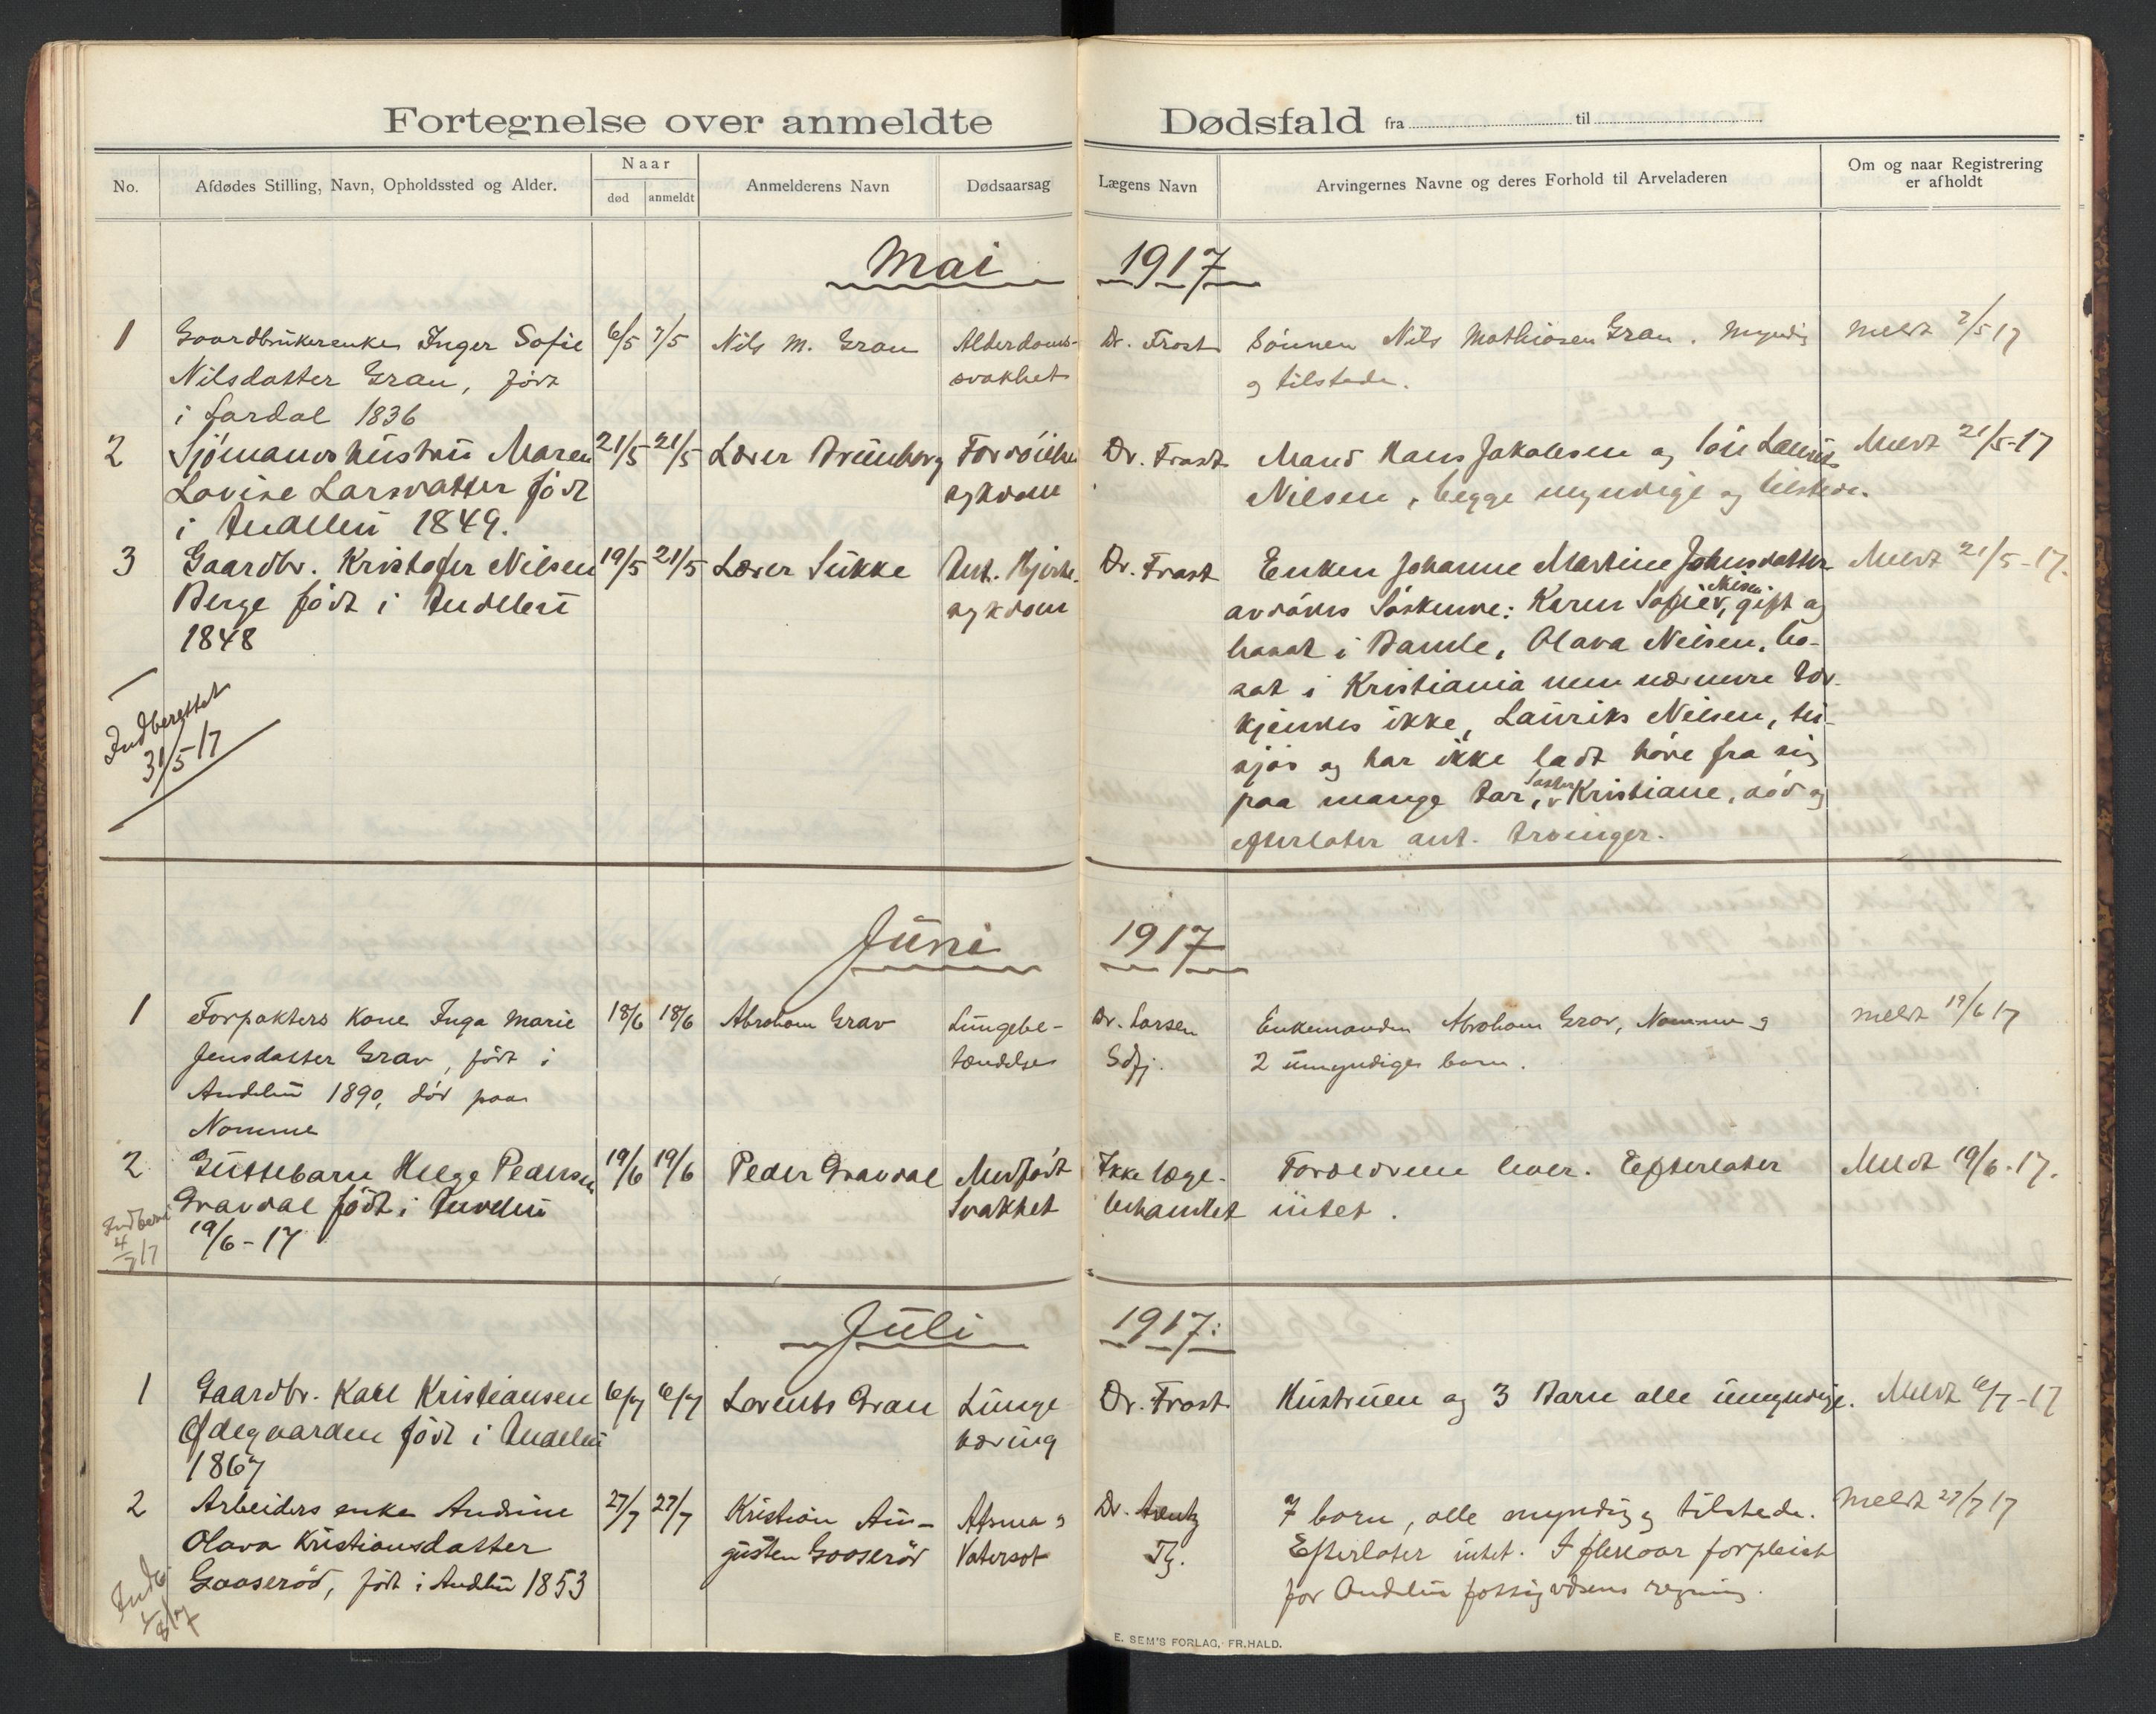 Fortegnelse over anmeldte Dødsfald fra til
No. Afdødes Stilling, Navn, Opholdssted og Alder. Naar død anmeldt Anmelderens Navn Dødsaarsag Lægens Navn Arvingernes Navne og deres Forhold til Arveladeren Om og naar Registrering er afholdt
Mai 1917
1 Gaardbrukerenke Inger Sofie 6/5 7/5 Nils M. Gran Alderdoms- Dr. Frost Sönnen Nils Mathiasen Gran. Myndig Meldt 7/5 17
Nilsdatter Gran, födt svakhet og tilstede.
i Lardal 1836
2 Sjömandshustru Maren 21/5 21/5 Lærer Bruuborg Dr. Frost Mand Hans Jakobsen og sön Laurits Meldt 21/5-17
Lovise Larsdatter födt sykdom Nilsen, begge myndige og tilstede.
i Andebu 1849.
3 Gaardbr. Kristofer Nilsen 19/5 21/5 Lærer Sukke Ant. Hjerte- Dr. Frost Enken Johanne Martine Johnsdatter Meldt 21/5-17.
Berge födt i Andebu sykdom avdödes Söskende: Karen Sofie Nilsen, gift og
1848 bosat i Bamle, Olava Nilsen, bo-
sat i Kristiania men nærmere Adr.
kjendes ikke, Lauriks Nilsen, til-
Indberettet sjös og har ikke ladt höre fra sig
31/5-17 paa mange Aar, Söster Kristiane, död og
efterlater ant. Arvinger.
Juni 1917
1 Forpakters kone Inga Marie 18/6 18/6 Abraham Grav Lungebe- Dr. Larsen Enkemanden Abraham Grav, Nomme og Meldt 19/6 17
Jensdatter Grav, födt i tændelse Sdfj. 2 umyndige barn.
Andebu 1890, död paa
Nomme
2 Guttebarn Helge Pedersen 19/6 19/6 Peder Gravdal Medfödt Ikke læge- Forældrene lever. Efterlater Meldt 19/6-17.
Gravdal födt i Andebu Svakhet behandlet intet.
19/6-17
4/7 17
Juli 1917:
1 Gaardbr. Karl Kristiansen 6/7 6/7 Lorents Gran Lunge Dr. Frost Hustruen og 3 Barn alle umyndige. Meldt 6/7-17
Ødegaarden födt i Andebu tæring
1867
2 Arbeiders enke Andrine 27/7 27/7 Kristian Au- Astma og Dr. Arentz 7 barn, alle myndig og tilstede. Meldt 27/7 17
Olava Kristiansdatter gusten Gaaseröd Vatersot Tg. Efterlater intet. I flere aar forpleiet
Gaaseröd, födt i Andebu 1853 for Andebu fattigvæsens regning.
Indb.
E. SEM'S FORLAG, FR.HALD.